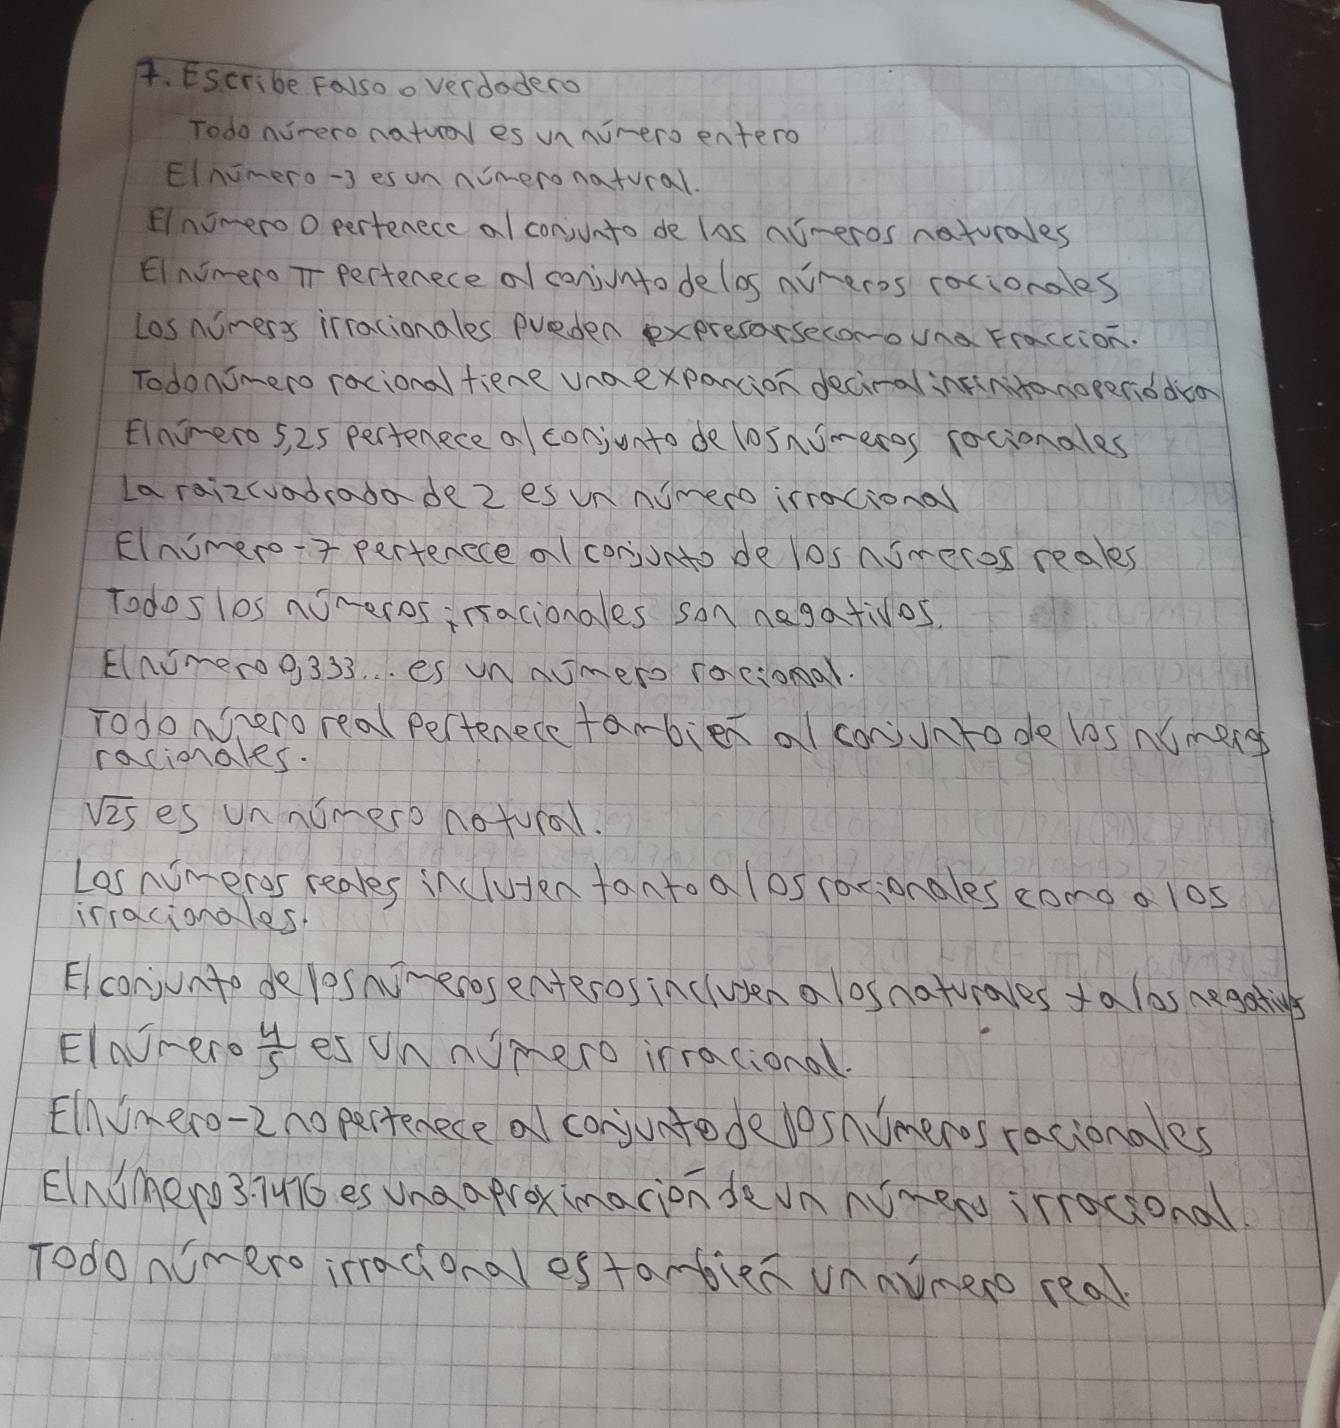 7. Escribe Falso o verdadero
Todo número natural es un número entero
El número -3 es un número natural.
El número 0 pertenece al conjunto de los números naturales
El número π pertenece al conjunto de los números racionales
Los números irracionales pueden expresarse como una Fracción.
Todo número racional tiene una expanción decimal infinita no periódica
El número 5,25 pertenece al conjunto de los números racionales
La raiz cuadrada de 2 es un número irracional
El número -7 pertenece al conjunto de los números reales
Todos los números irracionales son negativos.
El número 0,333... es un número racional.
Todo número real pertenece también al conjunto de los números
racionales.
√25 es un número natural.
Los números reales incluyen tanto a los racionales como a los
irracionales.
El conjunto de los números enteros incluyen a los naturales y a los negativos
El número 4/5 es un número irracional.
El número -2 no pertenece al conjunto de los números racionales
El número 3.1416 es una aproximación de un número irracional.
Todo número irracional es también un número real.